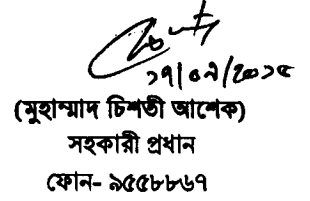 ১৭/০৯/২০১৫
(মুহাম্মাদ চিশতী আশেক)
সহকারী প্রধান
ফোন- ৯৫৫৮৮৬৭